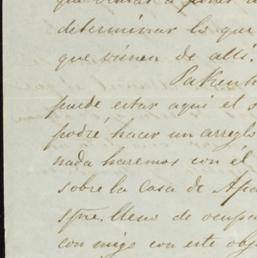 que
determinar lo que
que vienen de alli.
Pakenh
puede estar aqui el s
podré hacer un arreglo
nada haremos con él
sobre la Casa de Apa
spre. lleno de ocupa
con migo con este obj